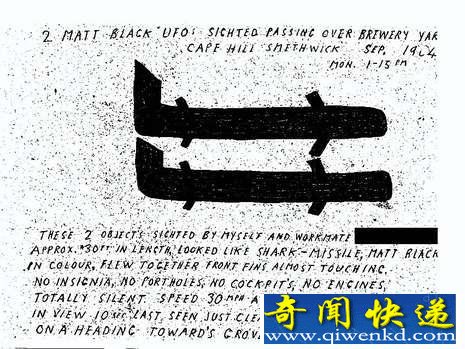 2 MATT BLACK UFO: SIGHTED PASSING OVER BREWERY YAR
CAPE HILL SMETHWICK SEP, 19
MON. 1-15 PM
THESE 2 OBJECTS SIGHTED BY MYSELF AND WORKMATE
APPROX. 30FT IN LENGTH, LOOKED LIKE SHARK-MISSILE, MATT BLACK
IN COLOUR, FLEW TOGETHER FRONT FINS ALMOST TOUCHING.
NO INSIGNIA, NO PORTHOLES, NO COCKPITS, NO ENGINES,
TOTALLY SILENT. SPEED 30 MPH A
IN VIEW 10 LAST SEEN JUST CLE
ON A HEADING TOWARD'S GROV
奇闻快递
www.qiwenkd.com